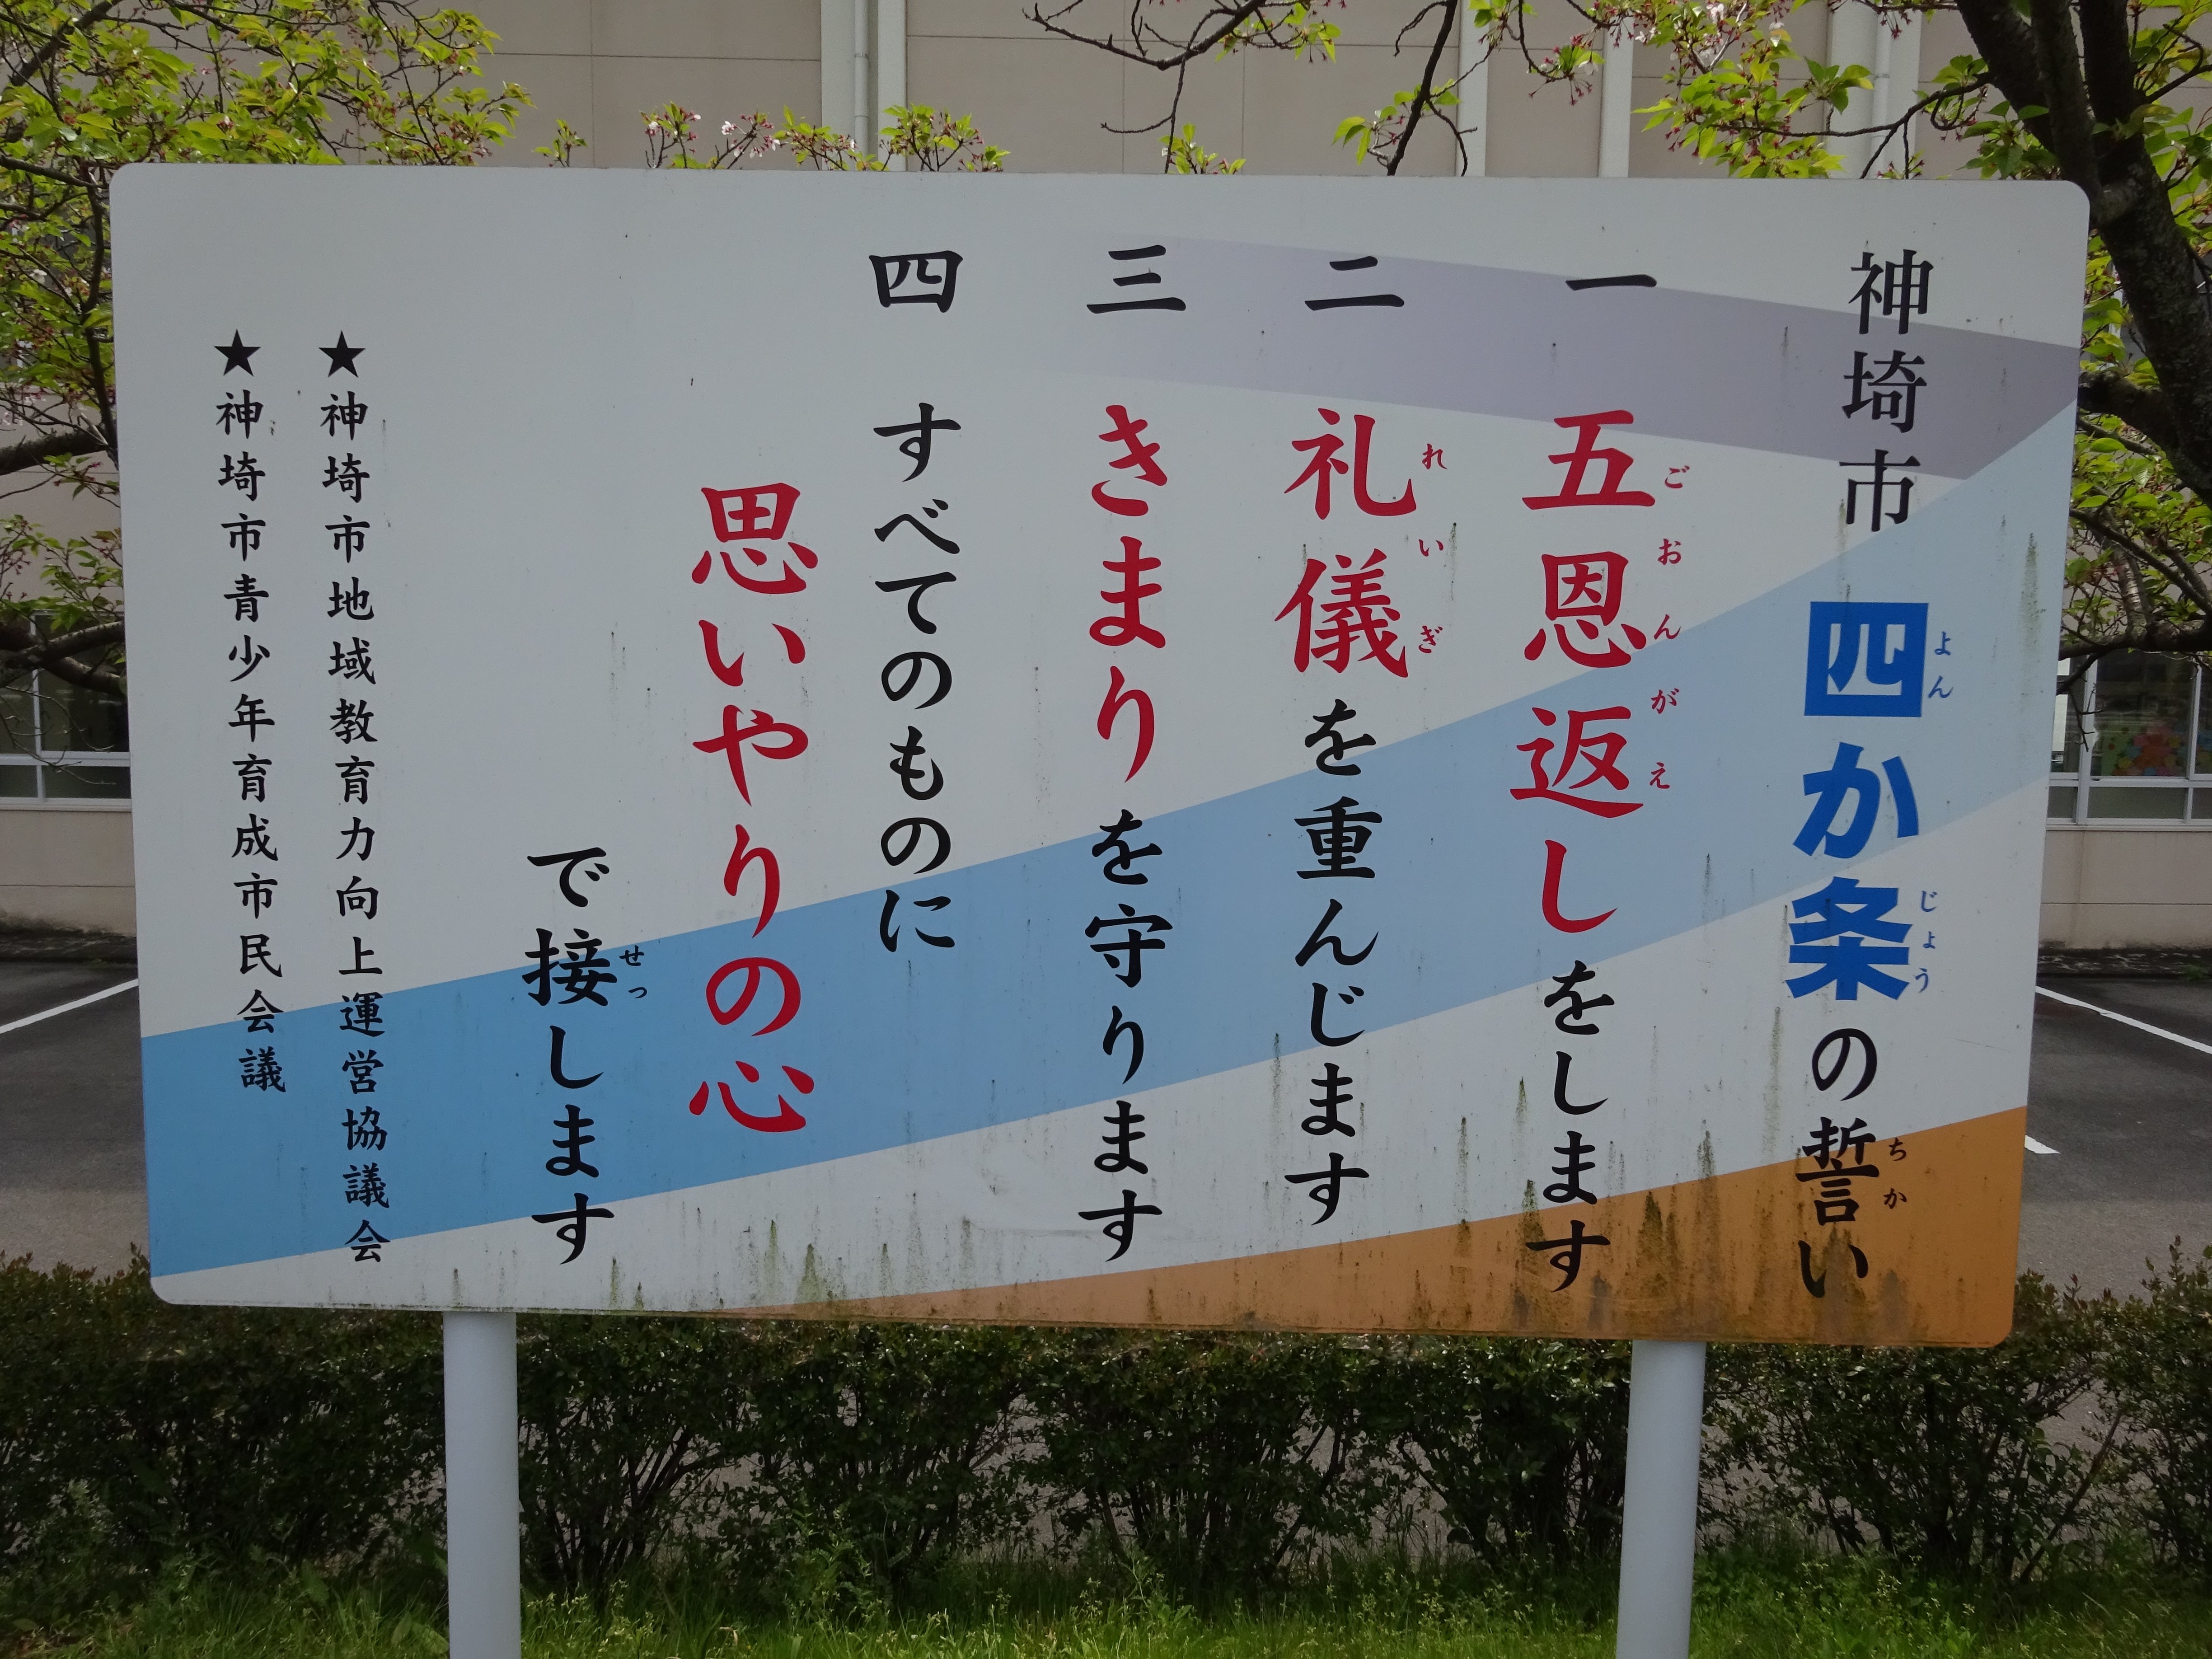 神埼市 四か条の誓い
よん
じょう
ちか
一 五恩返しをします
ごおんがえ
二 礼儀を重んじます
れいぎ
三 きまりを守ります
四 すべてのものに
思いやりの心
で接します
せっ
★神埼市地域教育力向上運営協議会
★神埼市青少年育成市民会議